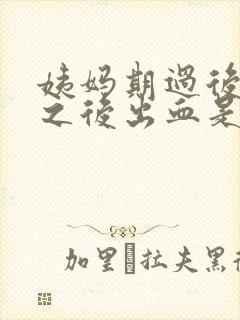 姨妈期過後
之後出血是
加里 拉夫黑